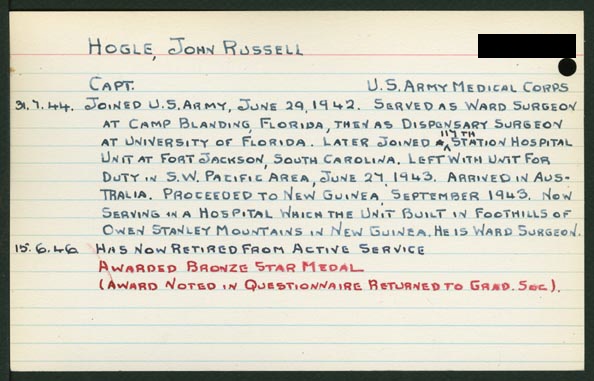 HOGLE, JOHN RUSSELL
CAPT. U.S. ARMY MEDICAL CORPS
31.7.44. JOINED U.S. ARMY, JUNE 29, 1942. SERVED AS WARD SURGEON
AT CAMP BLANDING, FLORIDA, THEN AS DISPENSARY SURGEON
AT UNIVERSITY OF FLORIDA. LATER JOINED 117TH STATION HOSPITAL
UNIT AT FORT JACKSON, SOUTH CAROLINA. LEFT WITH UNIT FOR
DUTY IN S.W. PACIFIC AREA, JUNE 27, 1943. ARRIVED IN AUS-
TRALIA. PROCEEDED TO NEW GUINEA, SEPTEMBER 1943. NOW
SERVING IN A HOSPITAL WHICH THE UNIT BUILT IN FOOTHILLS OF
OWEN STANLEY MOUNTAINS IN NEW GUINEA. HE IS WARD SURGEON.
15.6.46 HAS NOW RETIRED FROM ACTIVE SERVICE
AWARDED BRONZE STAR MEDAL
(AWARD NOTED IN QUESTIONNAIRE RETURNED TO GRAD. SOC).